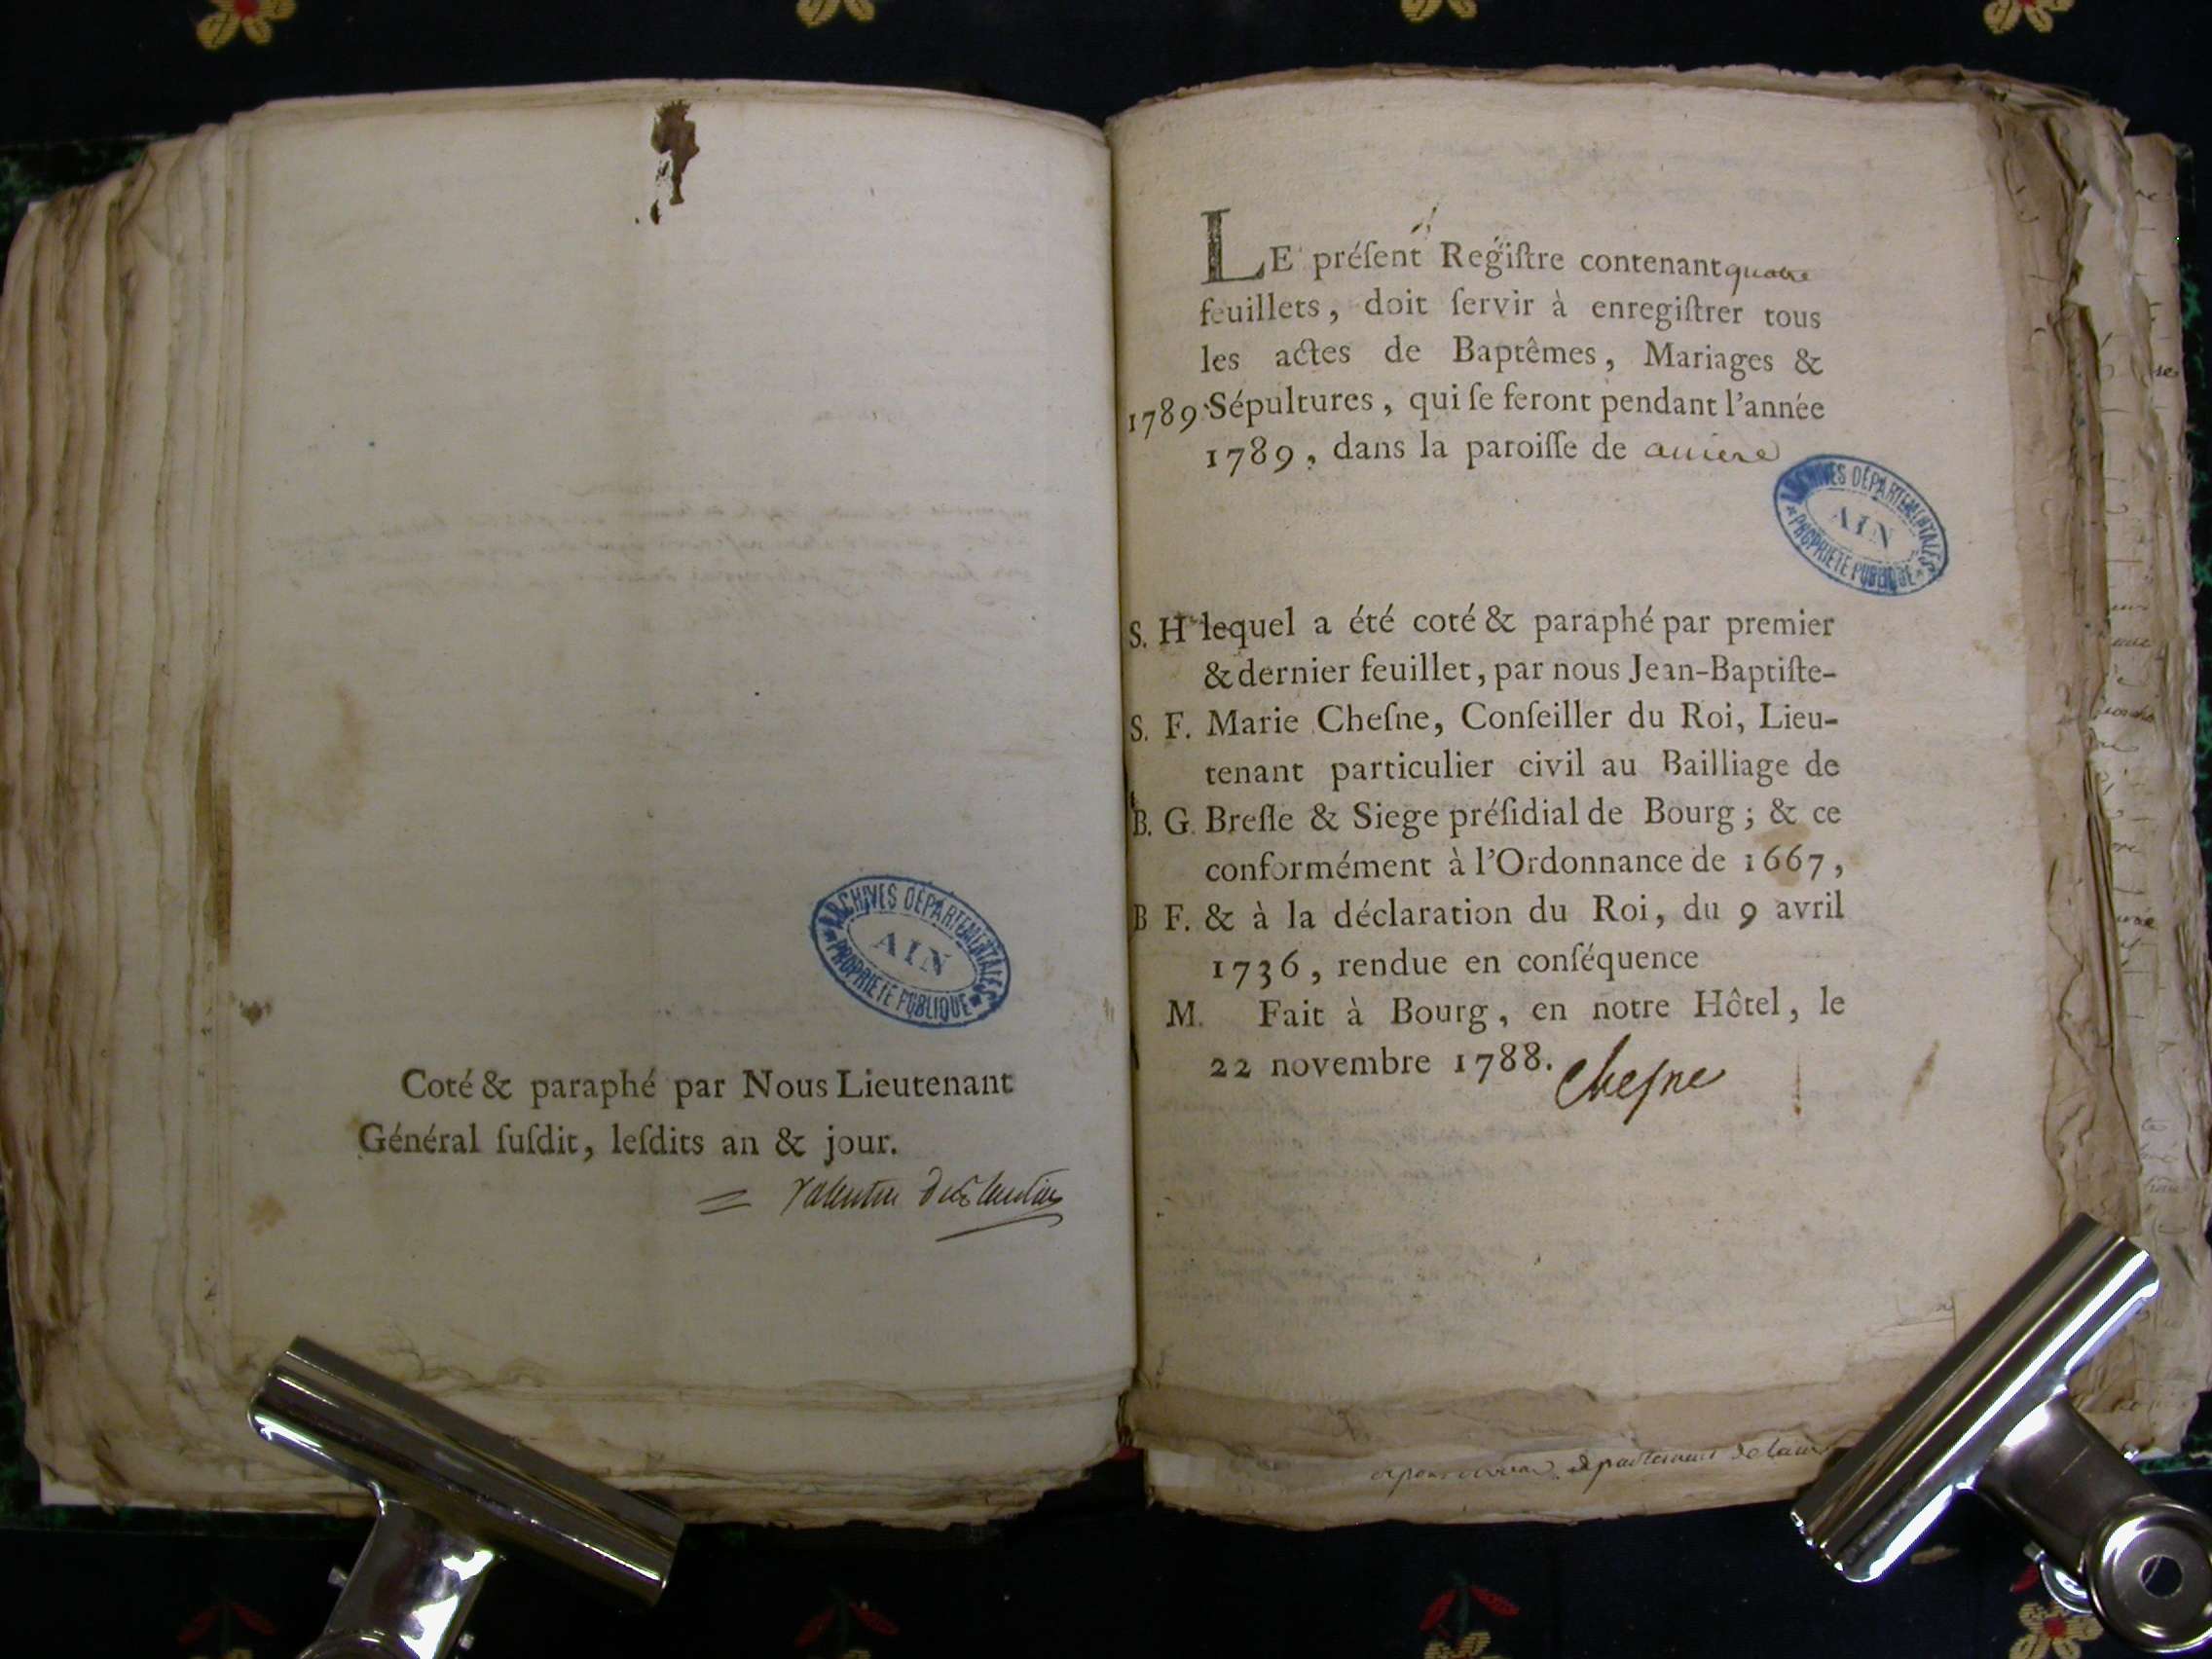 Coté & paraphé par Nous Lieutenant
Général ſuſdit, leſdits an & jour.
ARCHIVES DÉPARTEMENTALES
AIN
PROPRIÉTÉ PUBLIQUE
LE préſent Regiſtre contenant quatre
feuillets, doit ſervir à enregiſtrer tous
les actes de Baptêmes, Mariages &
1789 Sépultures, qui ſe feront pendant l'année
1789, dans la paroiſſe de
ARCHIVES DÉPARTEMENTALES
AIN
PROPRIÉTÉ PUBLIQUE
S. H lequel a été coté & paraphé par premier
& dernier feuillet, par nous Jean-Baptiſte-
S. F. Marie Cheſne, Conſeiller du Roi, Lieu-
tenant particulier civil au Bailliage de
B. G. Breſſe & Siege préſidial de Bourg ; & ce
conformément à l'Ordonnance de 1667,
B F. & à la déclaration du Roi, du 9 avril
1736, rendue en conſéquence
M. Fait à Bourg, en notre Hôtel, le
22 novembre 1788. Cheſne
département de l'ain